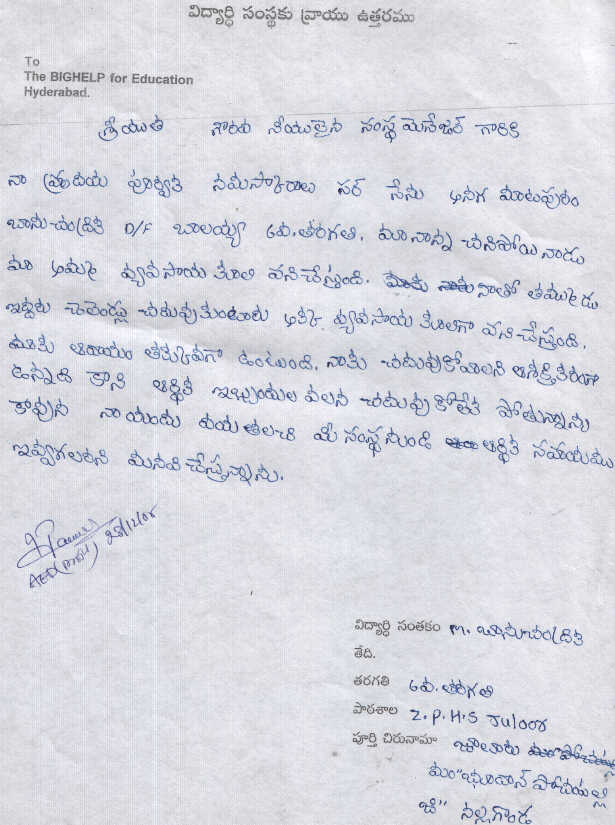 విద్యార్థి సంస్థకు వ్రాయు ఉత్తరము
To
The BIGHELP for Education
Hyderabad.
శ్రీయుత గౌరవ నీయులైన సంస్థ మేనేజర్ గారికి
నా హ్రుదయ పూర్వక నమస్కారాలు సర్ నేను అనగ మాటపురం
బానుచంద్రిక D/F బాలయ్య 6వ.తరగతి. మా నాన్న చనిపోయినాడు
మా అమ్మ వ్యవసాయ కూలి పనిచేస్తుంది. నాతో తమ్ముడు
ఇద్దరు చెలెండ్లు చదువుకుంటారు అక్క వ్యవసాయ కూలిగా పని చేస్తుంది.
మాకు ఆదాయం తక్కువగా ఉంటుంది. నాకు చదువుకోవాలని ఆసక్తికరంగా
ఉన్నది కాని ఆర్థిక ఇబ్బందుల వలన చదువు కోలేక పోతున్నాను
కావున నా యందు దయతలచి మీ సంస్థ నుండి ఆర్థిక సహాయము
ఇవ్వగలరని మనవి చేస్తున్నాను.
28/12/08
విద్యార్థి సంతకం M. బానుచంద్రిక
తేది.
తరగతి 6వ. తరగతి
పాఠశాల Z.P.H.S Juloor
పూర్తి చిరునామా జూలూరు
మం"భూదాన్ పోచంపల్లి
జి" నల్లగొండ